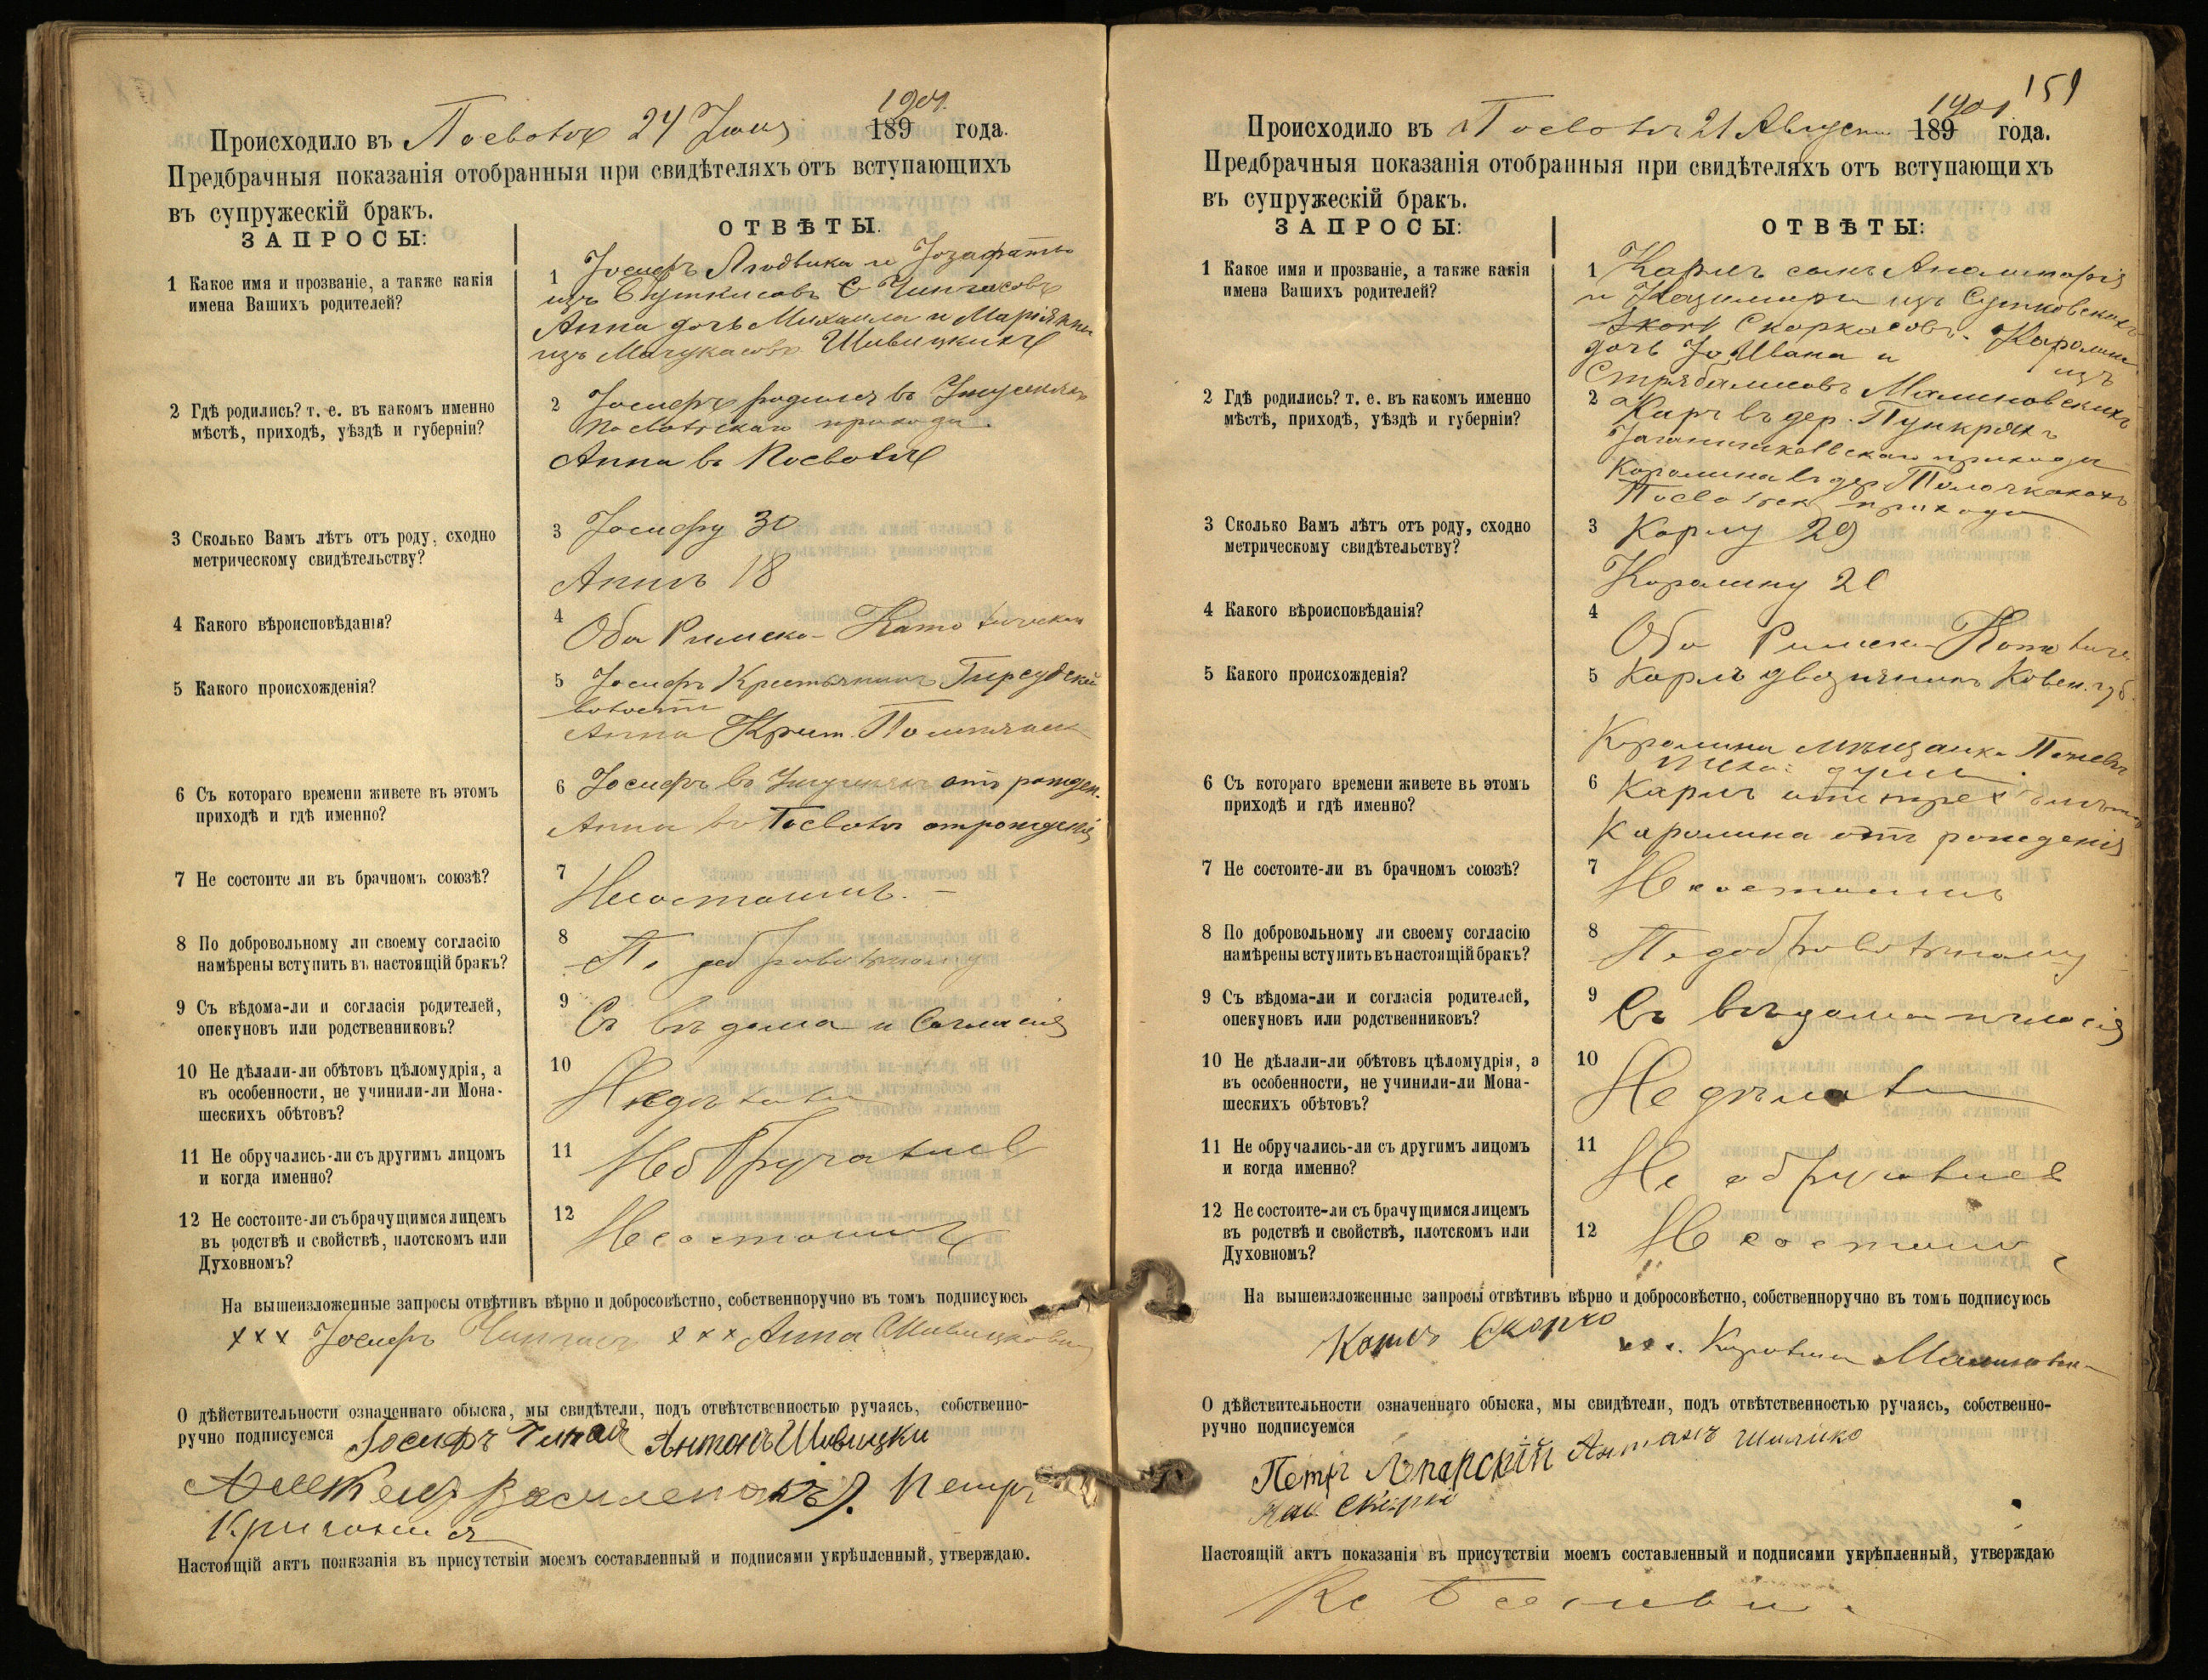 Происходило въ Посволѣ 24 Іюня 1901. 189 года.
Предбрачныя показанія отобранныя при свидѣтеляхъ отъ вступающихъ
въ супружескій бракъ.
ЗАПРОСЫ:
ОТВѢТЫ.
1 Какое имя и прозваніе, а также какія
имена Вашихъ родителей?
1 Іосифъ Людвика и Іозафаты
изъ
Анна дочь Михаила и Маріянны
изъ Мачукасовъ Шивицкихъ
2 Гдѣ родились? т. е. въ какомъ именно
мѣстѣ, приходѣ, уѣздѣ и губерніи?
2 Іосифъ родился въ
Посвольскаго прихода.
Анна въ Посволѣ
3 Сколько Вамъ лѣтъ отъ роду, сходно
метрическому свидѣтельству?
3 Іосифу 30
Аннѣ 18
4 Какого вѣроисповѣданія?
4 Оба Римско-Католическая
5 Какого происхожденія?
5 Іосифъ Крестьянинъ Гирсудской
волости
Анна Крест.
6 Съ котораго времени живете въ этомъ
приходѣ и гдѣ именно?
6 Іосифъ въ отъ рожден.
Анна въ Посволѣ отрожденія
7 Не состоите ли въ брачномъ союзѣ?
7 Несостоимъ. –
8 По добровольному ли своему согласію
намѣрены вступить въ настоящій бракъ?
8 По добровольному
9 Съ вѣдома-ли и согласія родителей,
опекуновъ или родственниковъ?
9 Съ вѣдома и Согласія
10 Не дѣлали-ли обѣтовъ цѣломудрія, а
въ особенности, не учинили-ли Мона-
шескихъ обѣтовъ?
10 Недѣлали
11 Не обручались-ли съ другимъ лицомъ
и когда именно?
11 Необручались
12 Не состоите-ли съ брачущимся лицемъ
въ родствѣ и свойствѣ, плотскомъ или
Духовномъ?
12 Несостоимъ
На вышеизложенные запросы отвѣтивъ вѣрно и добросовѣстно, собственноручно въ томъ подписуюсь
xxx Іосифъ xxx Анна
О дѣйствительности означеннаго обыска, мы свидѣтели, подъ отвѣтственностью ручаясь, собственно-
ручно подписуемся Іосифъ Антонъ Шивицки
Петръ
Настоящій актъ поакзанія въ присутствіи моемъ составленный и подписями укрѣпленный, утверждаю.
159
Происходило въ Посволѣ 21 Августа 1901 189 года.
Предбрачныя показанія отобранныя при свидѣтеляхъ отъ вступающихъ
въ супружескій бракъ.
ЗАПРОСЫ:
ОТВѢТЫ:
1 Какое имя и прозваніе, а также какія
имена Вашихъ родителей?
1 Карлъ сынъ
и изъ
Скоркасовъ. Каролина
дочь Ивана и изъ
Малиновскихъ
2 Гдѣ родились? т. е. въ какомъ именно
мѣстѣ, приходѣ, уѣздѣ и губерніи?
2 Карлъ въ дер.
прихода
Каролина въ дер.
Посвольск. прихода
3 Сколько Вамъ лѣтъ отъ роду, сходно
метрическому свидѣтельству?
3 Карлу 29
4 Какого вѣроисповѣданія?
4 Оба Римско-Католич.
5 Какого происхожденія?
5 Карлъ дворянинъ Ковен. губ.
Каролина мѣщанка
6 Съ котораго времени живете въ этомъ
приходѣ и гдѣ именно?
6 Карлъ отъ трехъ лѣтъ
Каролина отъ рожденія
7 Не состоите-ли въ брачномъ союзѣ?
7 Не состоимъ
8 По добровольному ли своему согласію
намѣрены вступить въ настоящій бракъ?
8 По добровольному
9 Съ вѣдома-ли и согласія родителей,
опекуновъ или родственниковъ?
9 Съ вѣдома
10 Не дѣлали-ли обѣтовъ цѣломудрія, а
въ особенности, не учинили-ли Мона-
шескихъ обѣтовъ?
10 Не дѣлали
11 Не обручались-ли съ другимъ лицомъ
и когда именно?
11 Не обручались
12 Не состоите-ли съ брачущимся лицемъ
въ родствѣ и свойствѣ, плотскомъ или
Духовномъ?
12 Не состоимъ
На вышеизложенные запросы отвѣтивъ вѣрно и добросовѣстно, собственноручно въ томъ подписуюсь
Карлъ Скорко xxx.
О дѣйствительности означеннаго обыска, мы свидѣтели, подъ отвѣтственностью ручаясь, собственно-
ручно подписуемся
Петръ Антанъ
Настоящій актъ показанія въ присутствіи моемъ составленный и подписями укрѣпленный, утверждаю